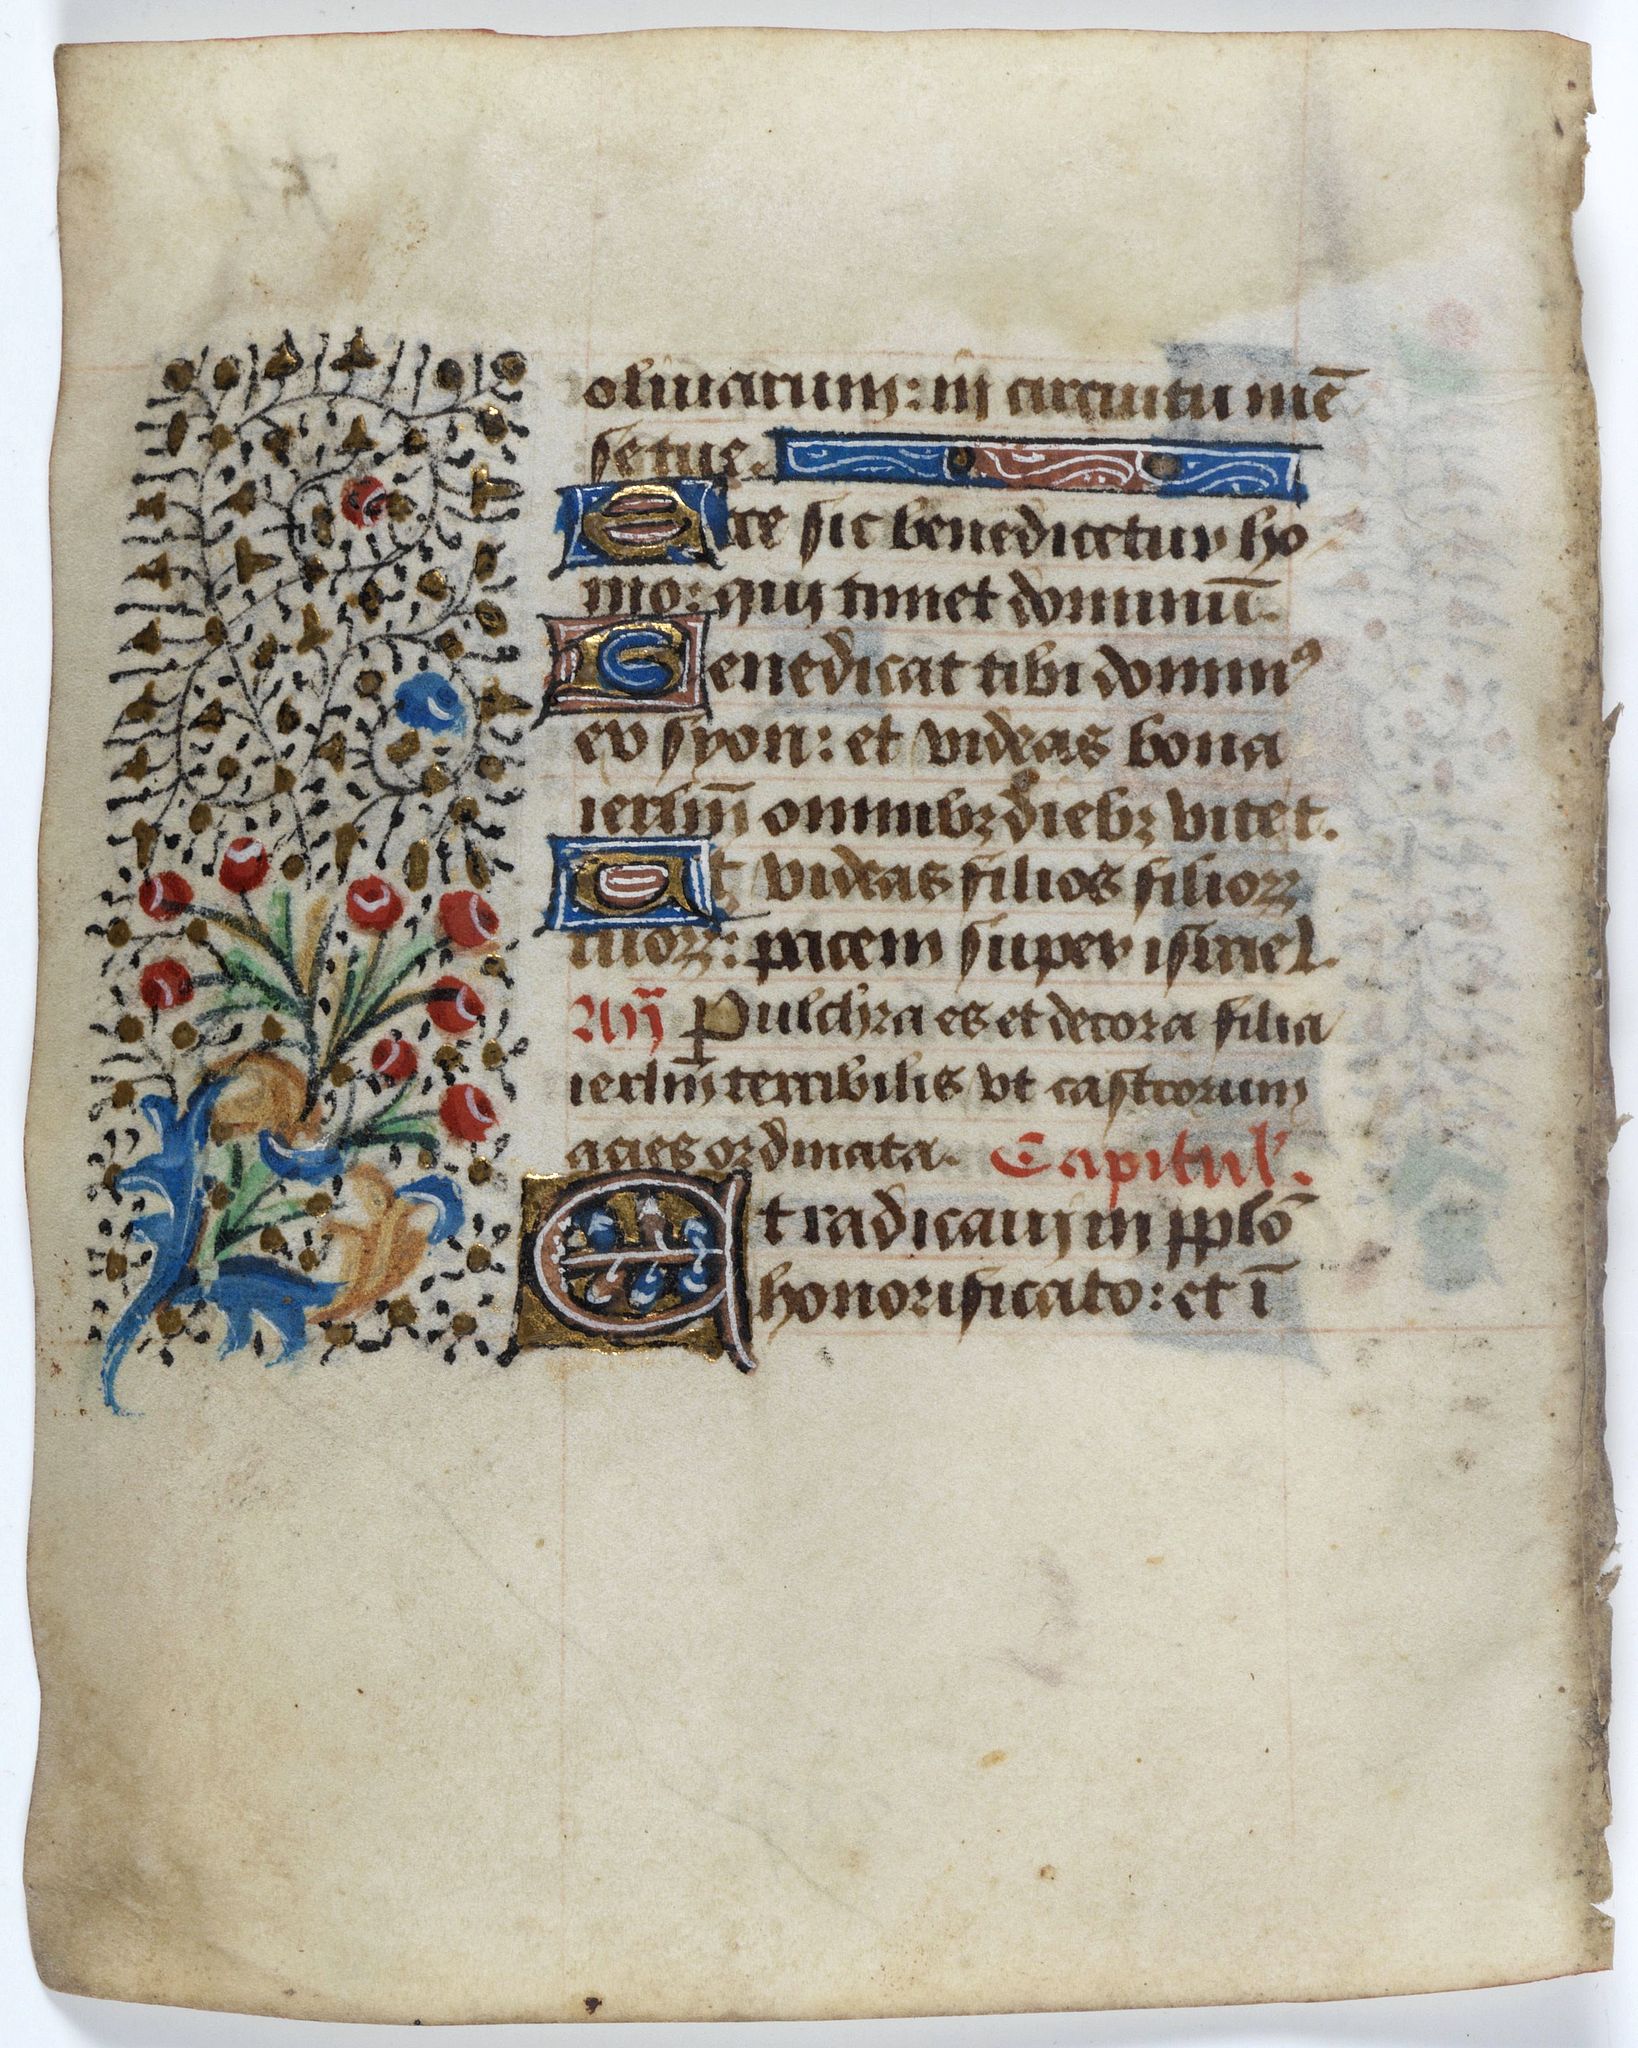 oliuarum: in circuitu mē
se tue.
Ecce sic benedicetur ho
mo: qui timet dominū.
Benedicat tibi dominꝰ
ex syon: et videas bona
ierlm̄ omnibꝫ diebꝫ vite t.
Et videas filios filioꝝ
tuoꝝ: pacem super israel.
An̄ Pulchra es et decora filia
ierlm̄ terribilis vt castrorum
acies ordinata. Capitul'.
Et radicaui in pplō
honorificato: et ī